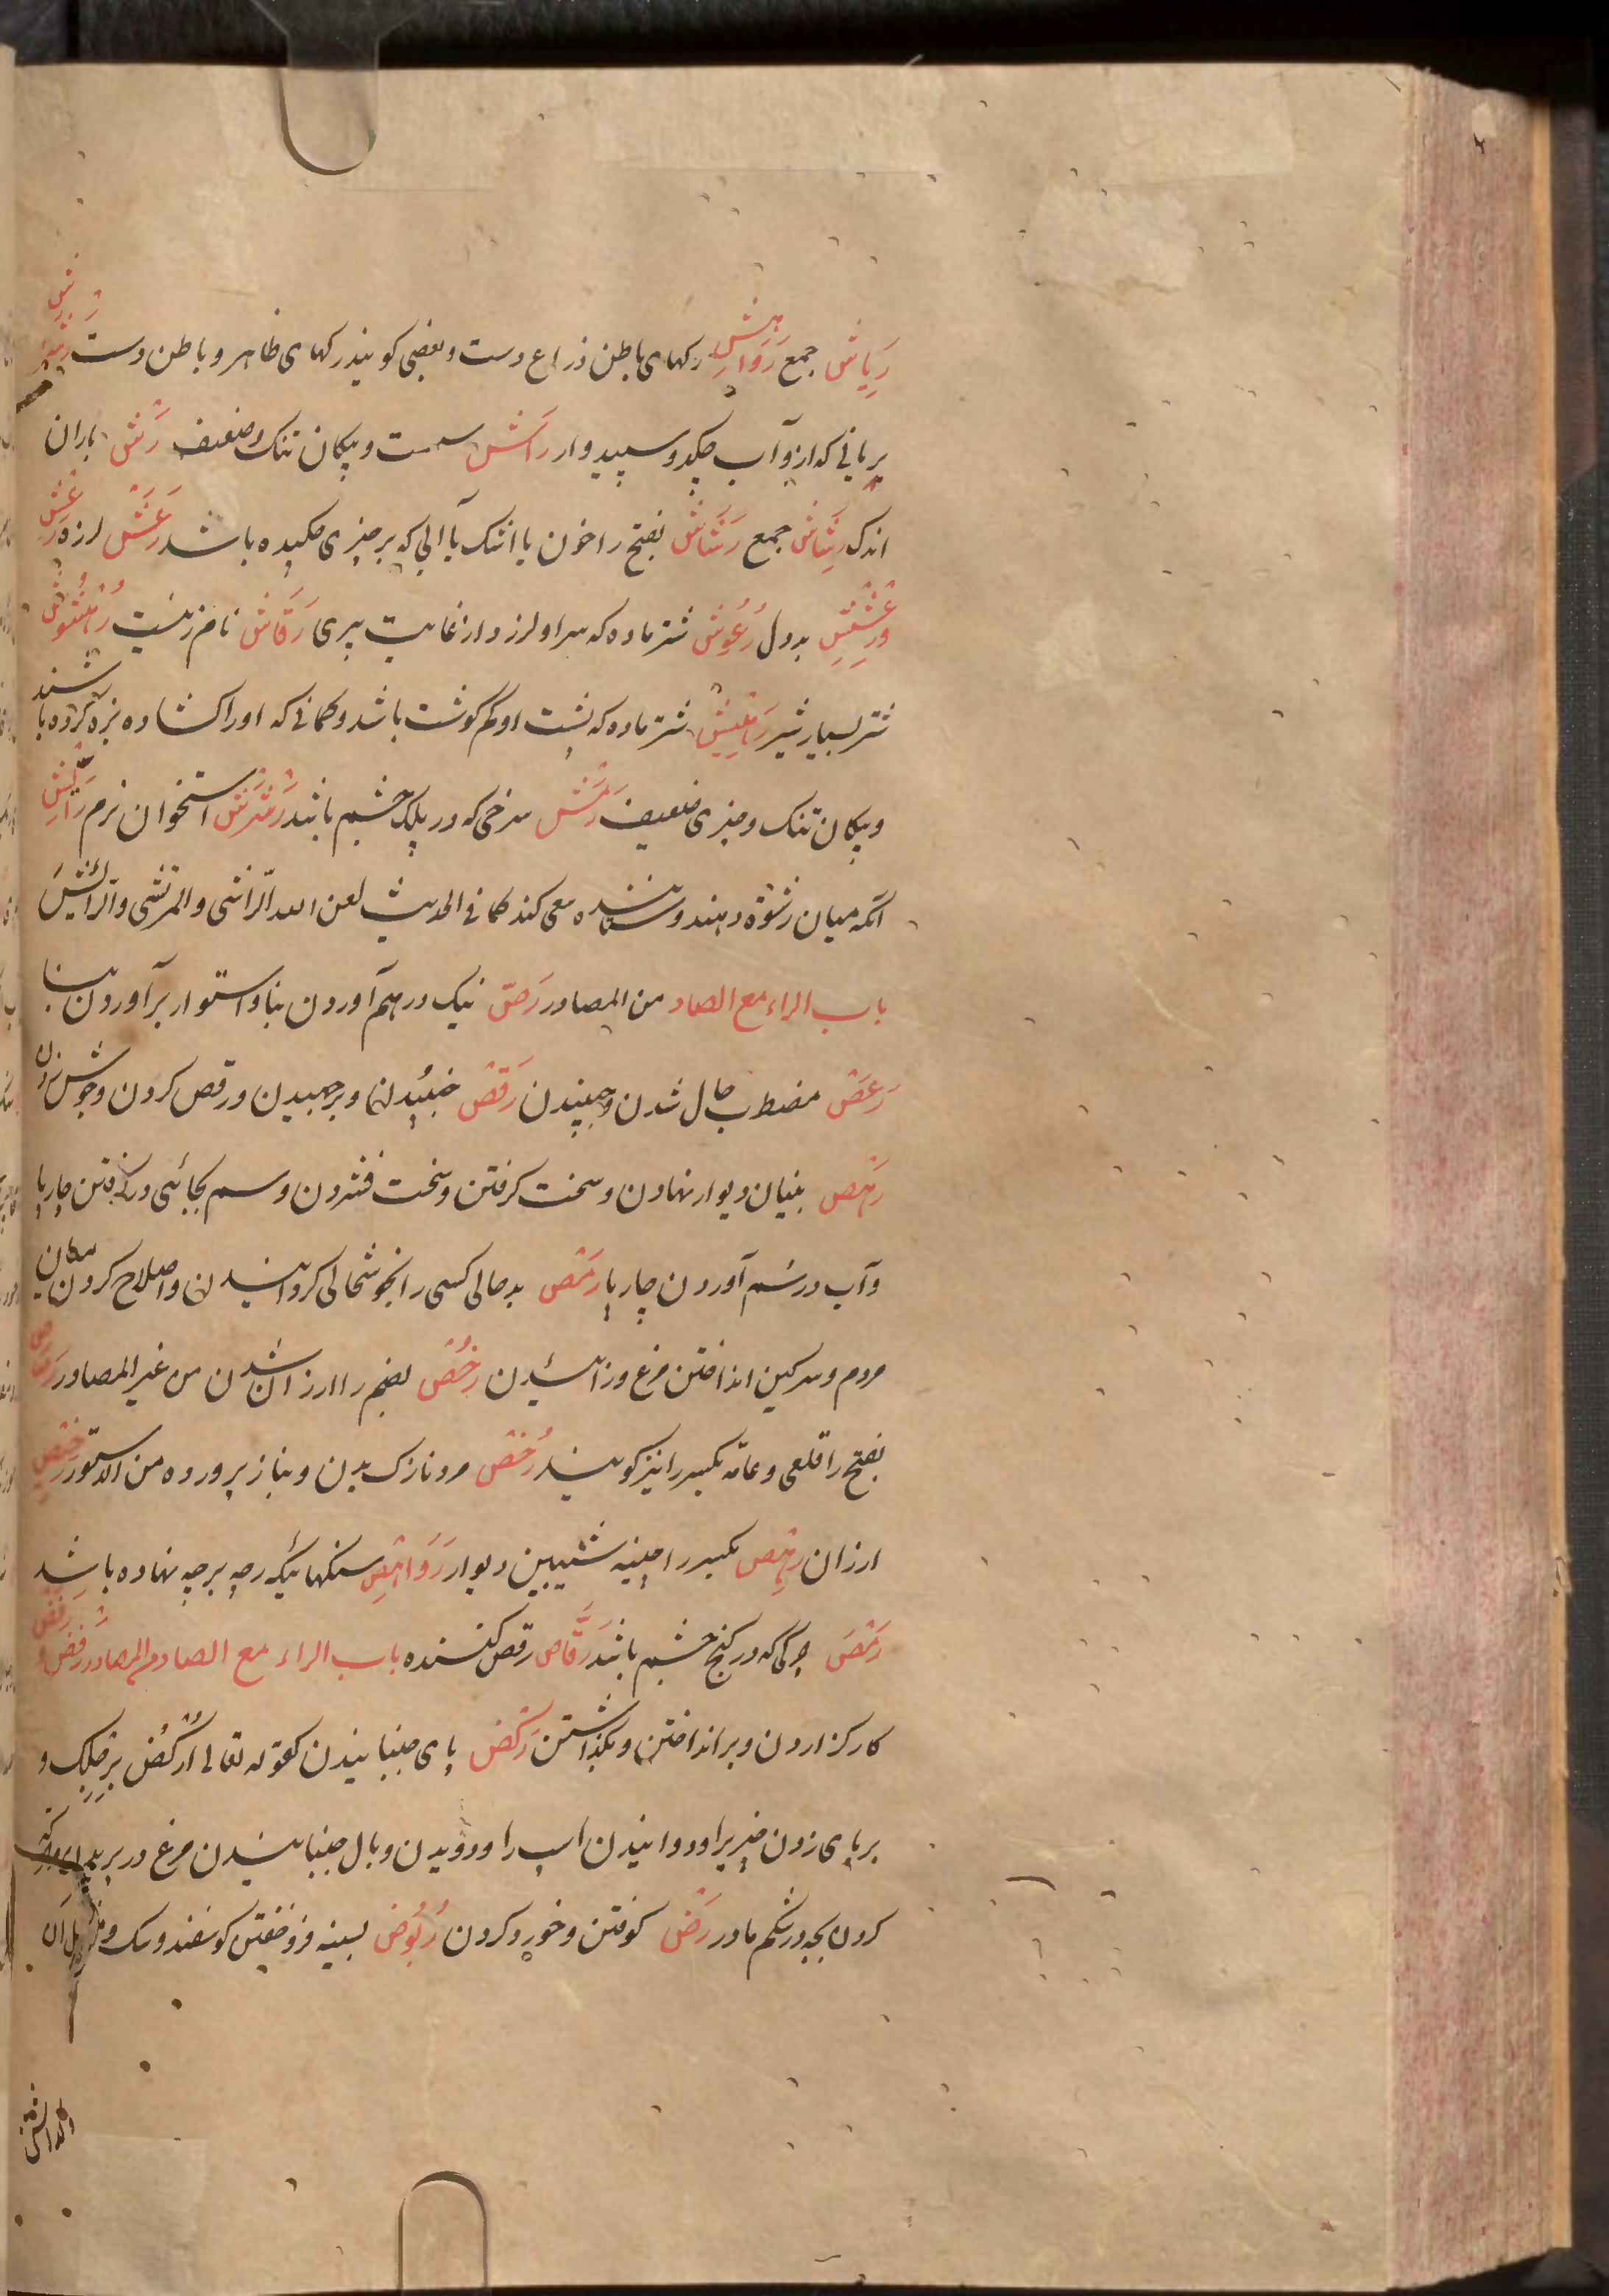 رِیاش جمع رَوَاهِش رکهای باطن ذراع دست و بعضی کویند رکهای ظاهر و باطن دست
بریانی که ازو آب چکد و سپیدوار رَاش سست و پیکان تنک و ضعیف رَش باران
اندک رِشَاش جمع رَشَاش بفتح را خون یا اشک یا آبی که بر چیزی چکیده باشد رَعَش لرزه رَعِش
و رِعْشِیش بددل رَعُوش شتر ماده که سر او لرزد از غایت پیری رَقَاش نام زنیست رُهْشُوش
شتر بسیار شیر رَهِیش شتر ماده که پشت او کم گوشت باشد و کمانی که او را کشاده بزه کرده باشند
و پیکان تنک و چیزی ضعیف رَمَش سرخی که در پلک چشم باشد استخوان نرم رَائِش
آنکه میان رشوة دهنده و ستاننده سعی کند کما فی الحدیث لعن الله الرّاشی و المرتشی و الرّائش
باب الراء مع الصاد من المصادر رَصّ نیک درهم آوردن بنا و استوار برآوردن بنا
رَعَص مضطرب حال شدن و جنبیدن رَقَص جنبیدن و برجهیدن و رقص کردن و جوش زدن
رَهَص بنیان دیوار نهادن و سخت کرفتن و سخت فشردن و سم بجائی در کرفتن چارپا
و آب در سُم آوردن چارپا رَمَص بدحالی کسی را بخوشحالی کردانیدن و اصلاح کردن میان
مردم و سرکین انداختن مرغ و زائیدن رُخُص بضم را ارزان شدن من غیر المصادر رَصَاص
بفتح را قلعی و عامّه بکسر را نیز کویند رَخْص مرد نازک بدن و بناز پرورده من الدستور رَخِیص
ارزان رِهْص بکسر را چینه شیبین دیوار رَوَاهِص سنکهائیکه رجه برجه نهاده باشد
رَمَص چرکی که در کنج چشم باشد رَقَّاص رقص کننده باب الراء مع الضاد من المصادر رَفض
کار کزاردن و برانداختن و بکذاشتن رَکض پای جنبانیدن کقوله تعالی اُرْکُض بِرِجْلِک و
بر پای زدن چیزیرا و دوانیدن اسپ را و دویدن و بال جنبانیدن مرغ در پریدن و حرکت
کردن بچه در شکم مادر رَضّ کوفتن و خورد کردن رُبُوض بسینه فرو خفتن کوسفند و سک و مثل آن